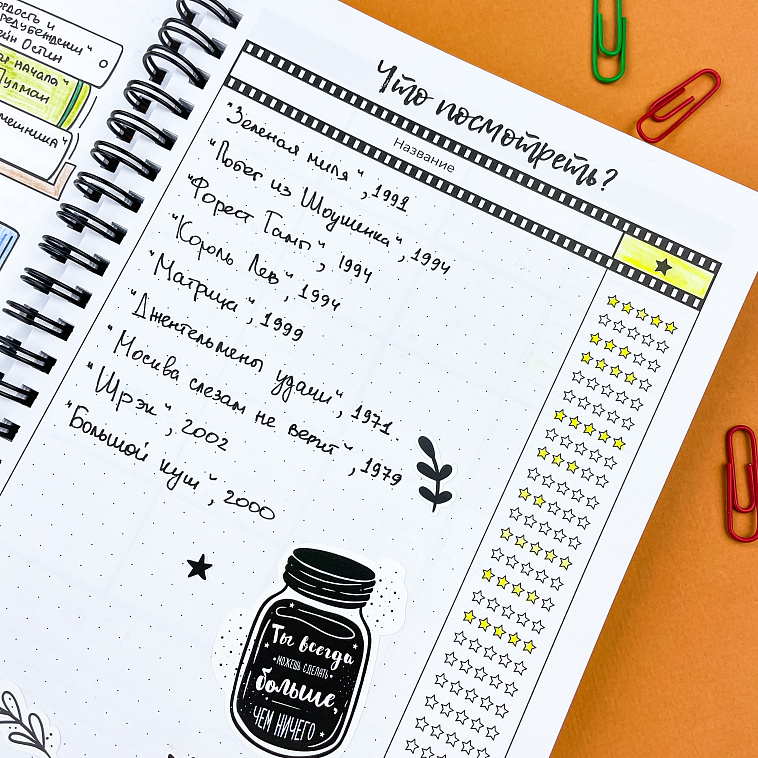 ордость и
редубеждении"
ейн Остин
начала"
Пулман
мешника"
Что посмотреть?
Название
"Зеленая миля", 1991
"Побег из Шоушенка", 1994
"Форест Гамп", 1994
"Король Лев", 1994
"Матрица", 1999
"Джентельмены удачи", 1971.
"Москва слезам не верит", 1979
"Шрэк", 2002
"Большой куш", 2000
Ты всегда
можешь сделать
больше,
чем ничего